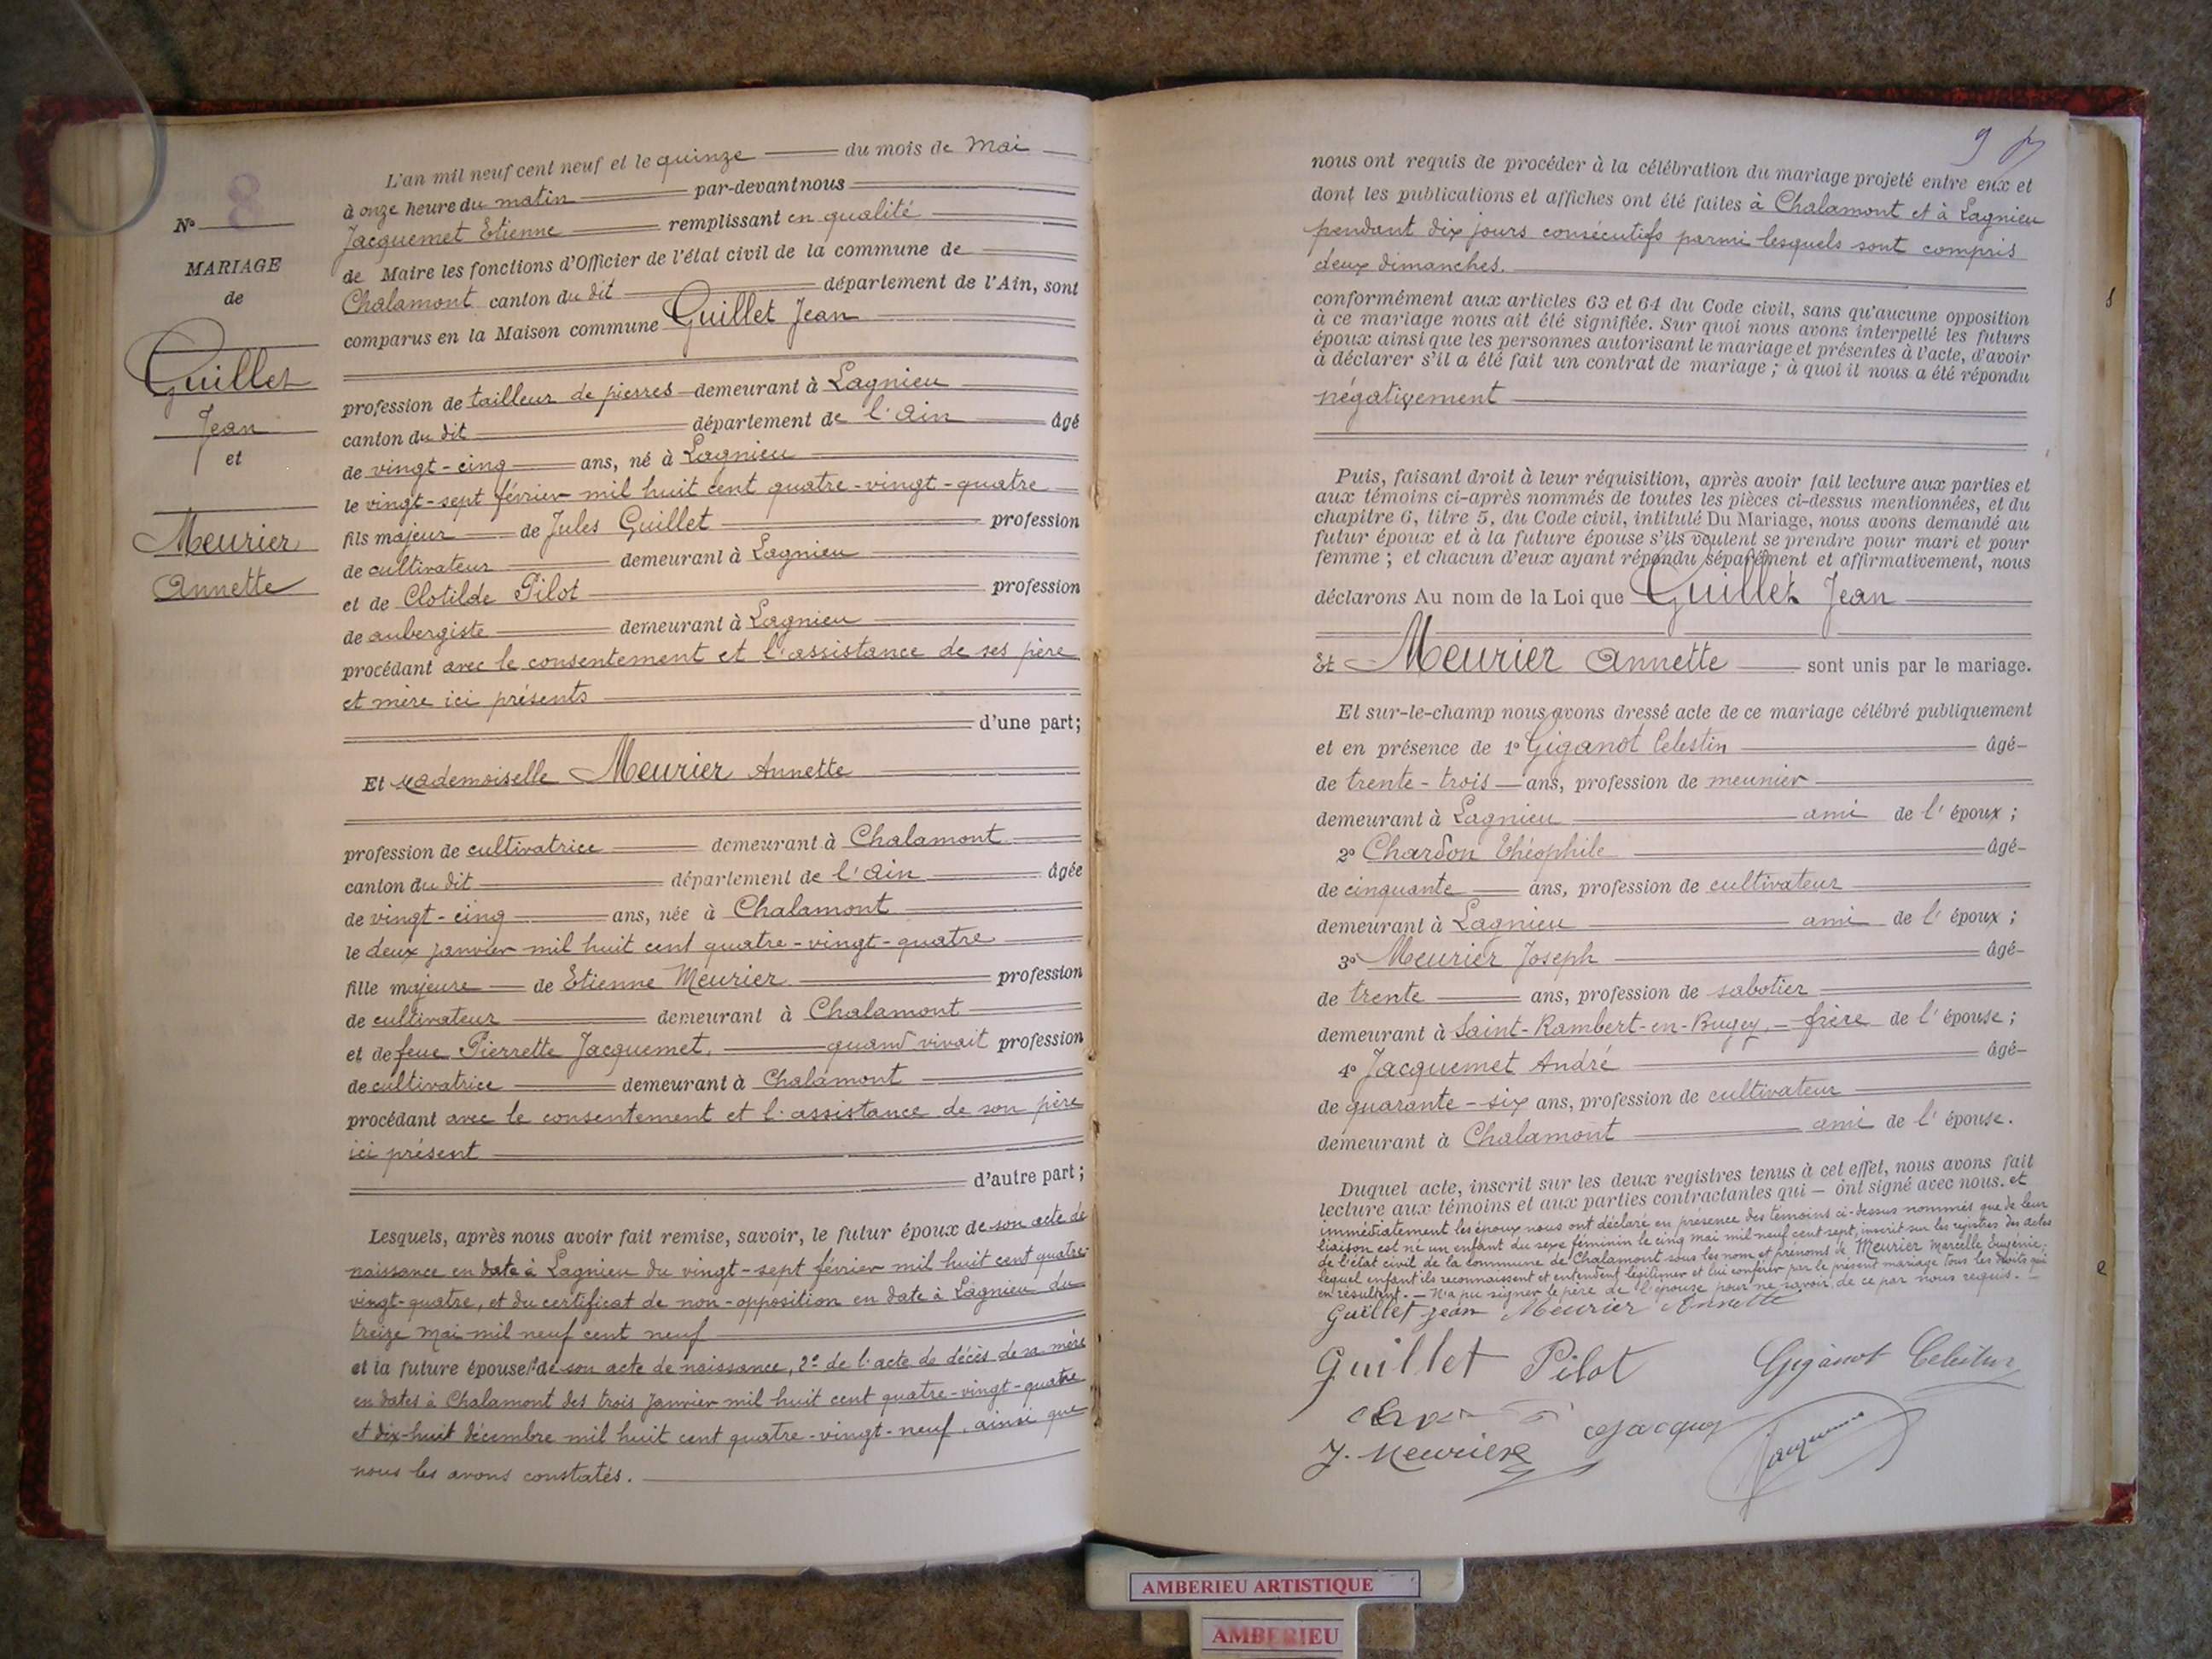 N° 8
MARIAGE
de
Guillet
Jean
et
Meurier
Annette
L'an mil neuf cent neuf et le quinze du mois de Mai
à onze heure du matin par-devant nous
Jacquemet Etienne remplissant en qualité
de Maire les fonctions d'Officier de l'état civil de la commune de
Chalamont canton du dit département de l'Ain, sont
comparus en la Maison commune Guillet Jean
profession de tailleur de pierres demeurant à Lagnieu
canton du dit département de l'Ain âgé
de vingt-cinq ans, né à Lagnieu
le vingt-sept février mil huit cent quatre-vingt-quatre
fils majeur de Jules Guillet profession
de cultivateur demeurant à Lagnieu
et de Clotilde Pilot profession
de aubergiste demeurant à Lagnieu
procédant avec le consentement et l'assistance de ses père
et mère ici présents
d'une part;
Et Mademoiselle Meurier Annette
profession de cultivatrice demeurant à Chalamont
canton du dit département de l'Ain âgée
de vingt-cinq ans, née à Chalamont
le deux janvier mil huit cent quatre-vingt-quatre
fille majeure de Etienne Meurier profession
de cultivateur demeurant à Chalamont
et de feue Pierrette Jacquemet, quand vivait profession
de cultivatrice demeurant à Chalamont
procédant avec le consentement et l'assistance de son père
ici présent
d'autre part;
Lesquels, après nous avoir fait remise, savoir, le futur époux de son acte de
naissance en date à Lagnieu du vingt-sept février mil huit cent quatre-
vingt-quatre, et du certificat de non-opposition en date à Lagnieu du
treize Mai mil neuf cent neuf
et la future épouse 1° de son acte de naissance, 2° de l'acte de décès de sa mère
en dates à Chalamont des trois Janvier mil huit cent quatre-vingt-quatre
et dix-huit décembre mil huit cent quatre-vingt-neuf, ainsi que
nous les avons constatés.
9
nous ont requis de procéder à la célébration du mariage projeté entre eux et
dont les publications et affiches ont été faites à Chalamont et à Lagnieu
pendant dix jours consécutifs parmi lesquels sont compris
deux dimanches.
conformément aux articles 63 et 64 du Code civil, sans qu'aucune opposition
à ce mariage nous ait été signifiée. Sur quoi nous avons interpellé les futurs
époux ainsi que les personnes autorisant le mariage et présentes à l'acte, d'avoir
à déclarer s'il a été fait un contrat de mariage; à quoi il nous a été répondu
négativement
Puis, faisant droit à leur réquisition, après avoir fait lecture aux parties et
aux témoins ci-après nommés de toutes les pièces ci-dessus mentionnées, et du
chapitre 6, titre 5, du Code civil, intitulé Du Mariage, nous avons demandé au
futur époux et à la future épouse s'ils veulent se prendre pour mari et pour
femme; et chacun d'eux ayant répondu séparément et affirmativement, nous
déclarons Au nom de la Loi que Guillet Jean
Et Meurier Annette sont unis par le mariage.
Et sur-le-champ nous avons dressé acte de ce mariage célébré publiquement
et en présence de 1° Giganot Celestin âgé
de trente-trois ans, profession de meunier
demeurant à Lagnieu ami de l'époux;
2° Chardon Théophile âgé
de cinquante ans, profession de cultivateur
demeurant à Lagnieu ami de l'époux;
3° Meurier Joseph âgé
de trente ans, profession de sabotier
demeurant à Saint-Rambert-en-Bugey, frère de l'épouse;
4° Jacquemet André âgé
de quarante-six ans, profession de cultivateur
demeurant à Chalamont ami de l'épouse.
Duquel acte, inscrit sur les deux registres tenus à cet effet, nous avons fait
lecture aux témoins et aux parties contractantes qui ont signé avec nous. et
immédiatement les époux nous ont déclaré en présence des témoins ci-dessus nommés que de leur
liaison est né un enfant du sexe féminin le cinq mai mil neuf cent sept, inscrit sur les registres des actes
de l'état civil de la commune de Chalamont sous les nom et prénoms de Meurier Marcelle Eugénie;
lequel enfant ils reconnaissent et entendent légitimer et lui conférer par le présent mariage tous les droits qui
en résultent. — N'a pu signer le père de l'épouse pour ne savoir de ce par nous requis.
Guillet jean Meurier Annette
Guillet Pilot Giganot Celestin
J. Meurier
AMBERIEU ARTISTIQUE
AMBERIEU